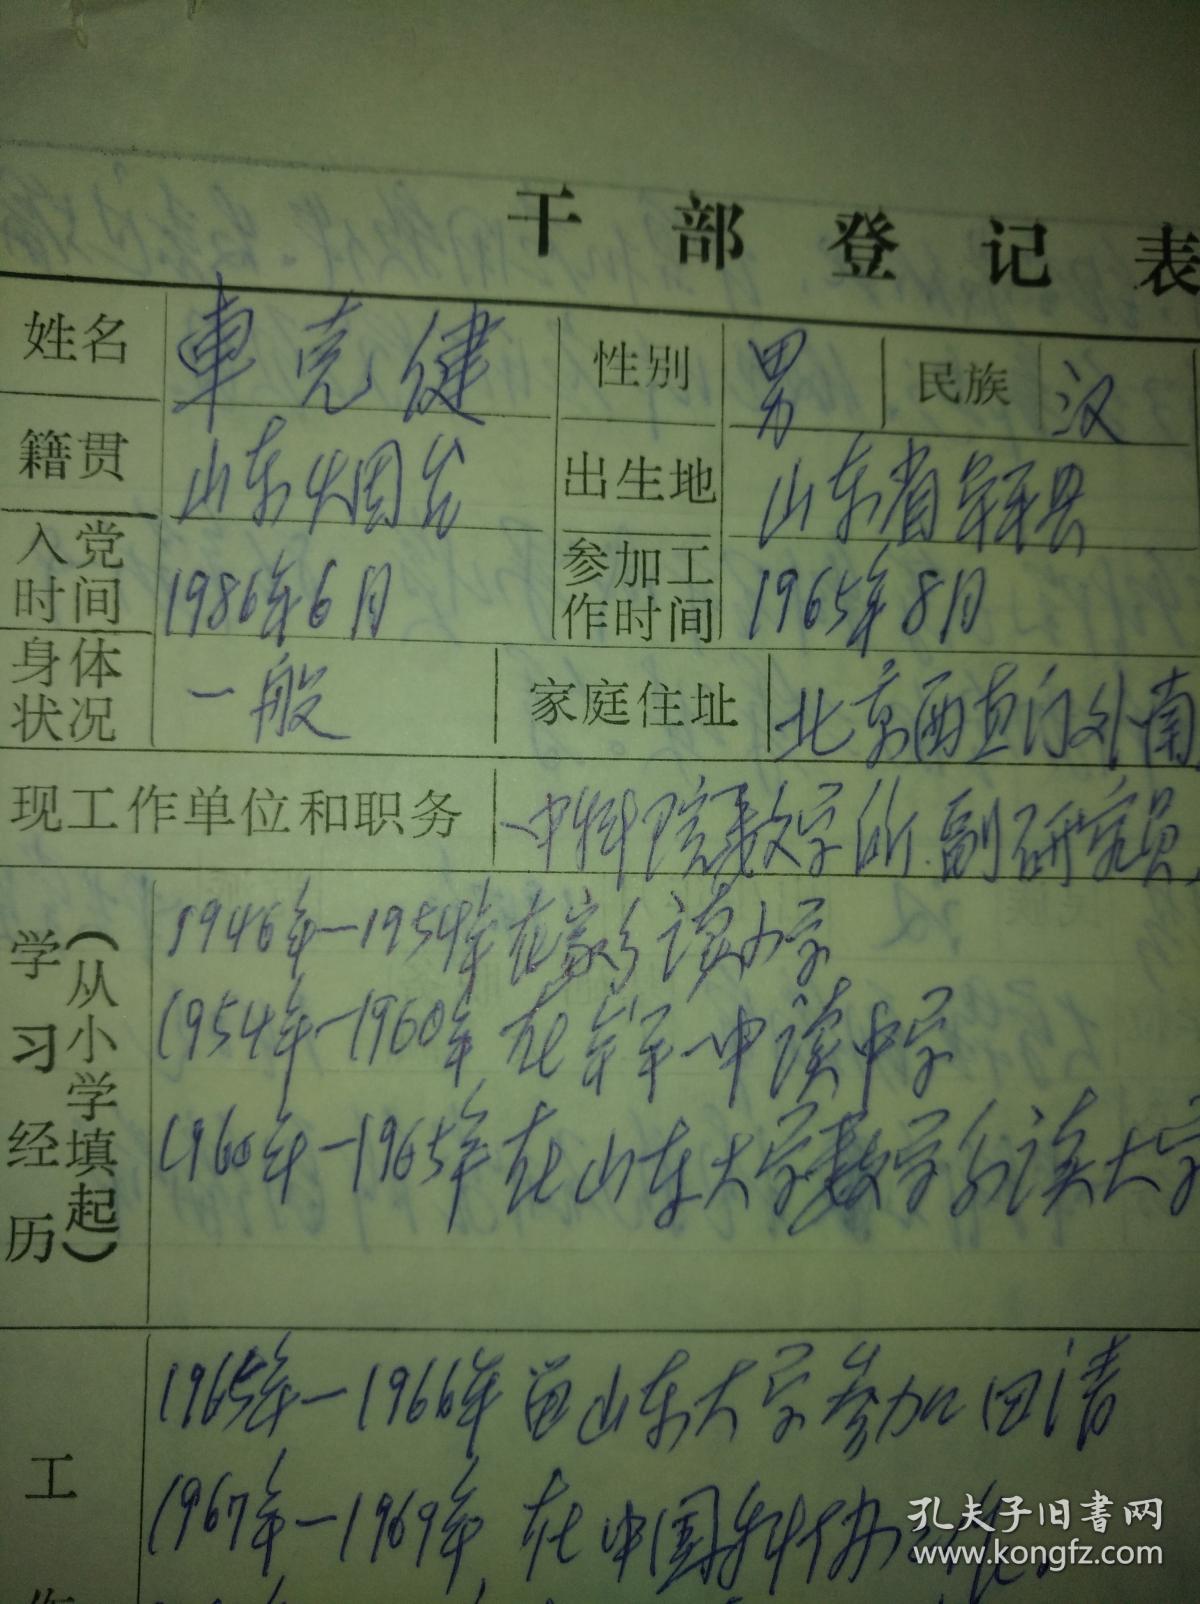 干部登记表
姓名 車克健 性别 男 民族 汉
籍贯 山东烟台 出生地 山东省牟平县
入党时间 1986年6月 参加工作时间 1965年8月
身体状况 一般 家庭住址 北京西直门外南
现工作单位和职务 中科院数学所.副研究员.
学习经历(从小学填起)
1946年—1954年在家乡读小学
1954年—1960年在牟平一中读中学
1960年—1965年在山东大学数学系读大学
工作
1965年—1966年留山东大学参加四清
1967年—1969年,在中国科协工作.
孔夫子旧书网
www.kongfz.com